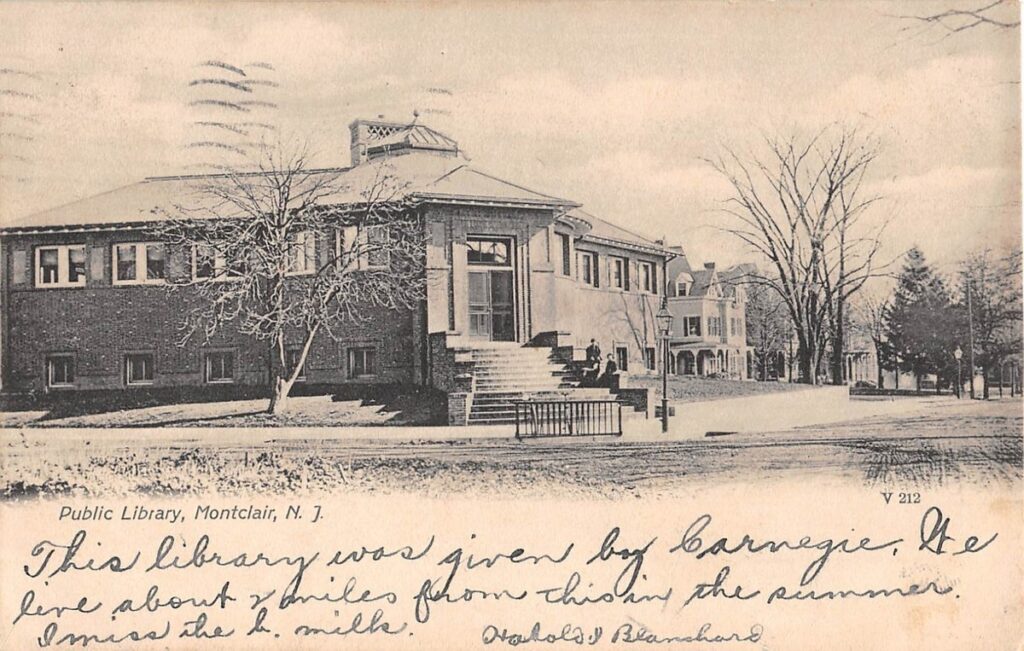 Public Library, Montclair, N. J.
V 212
This library was given by Carnegie. We
live about 2 miles from this in the summer.
I miss the b. milk.
Harold J Blanchard